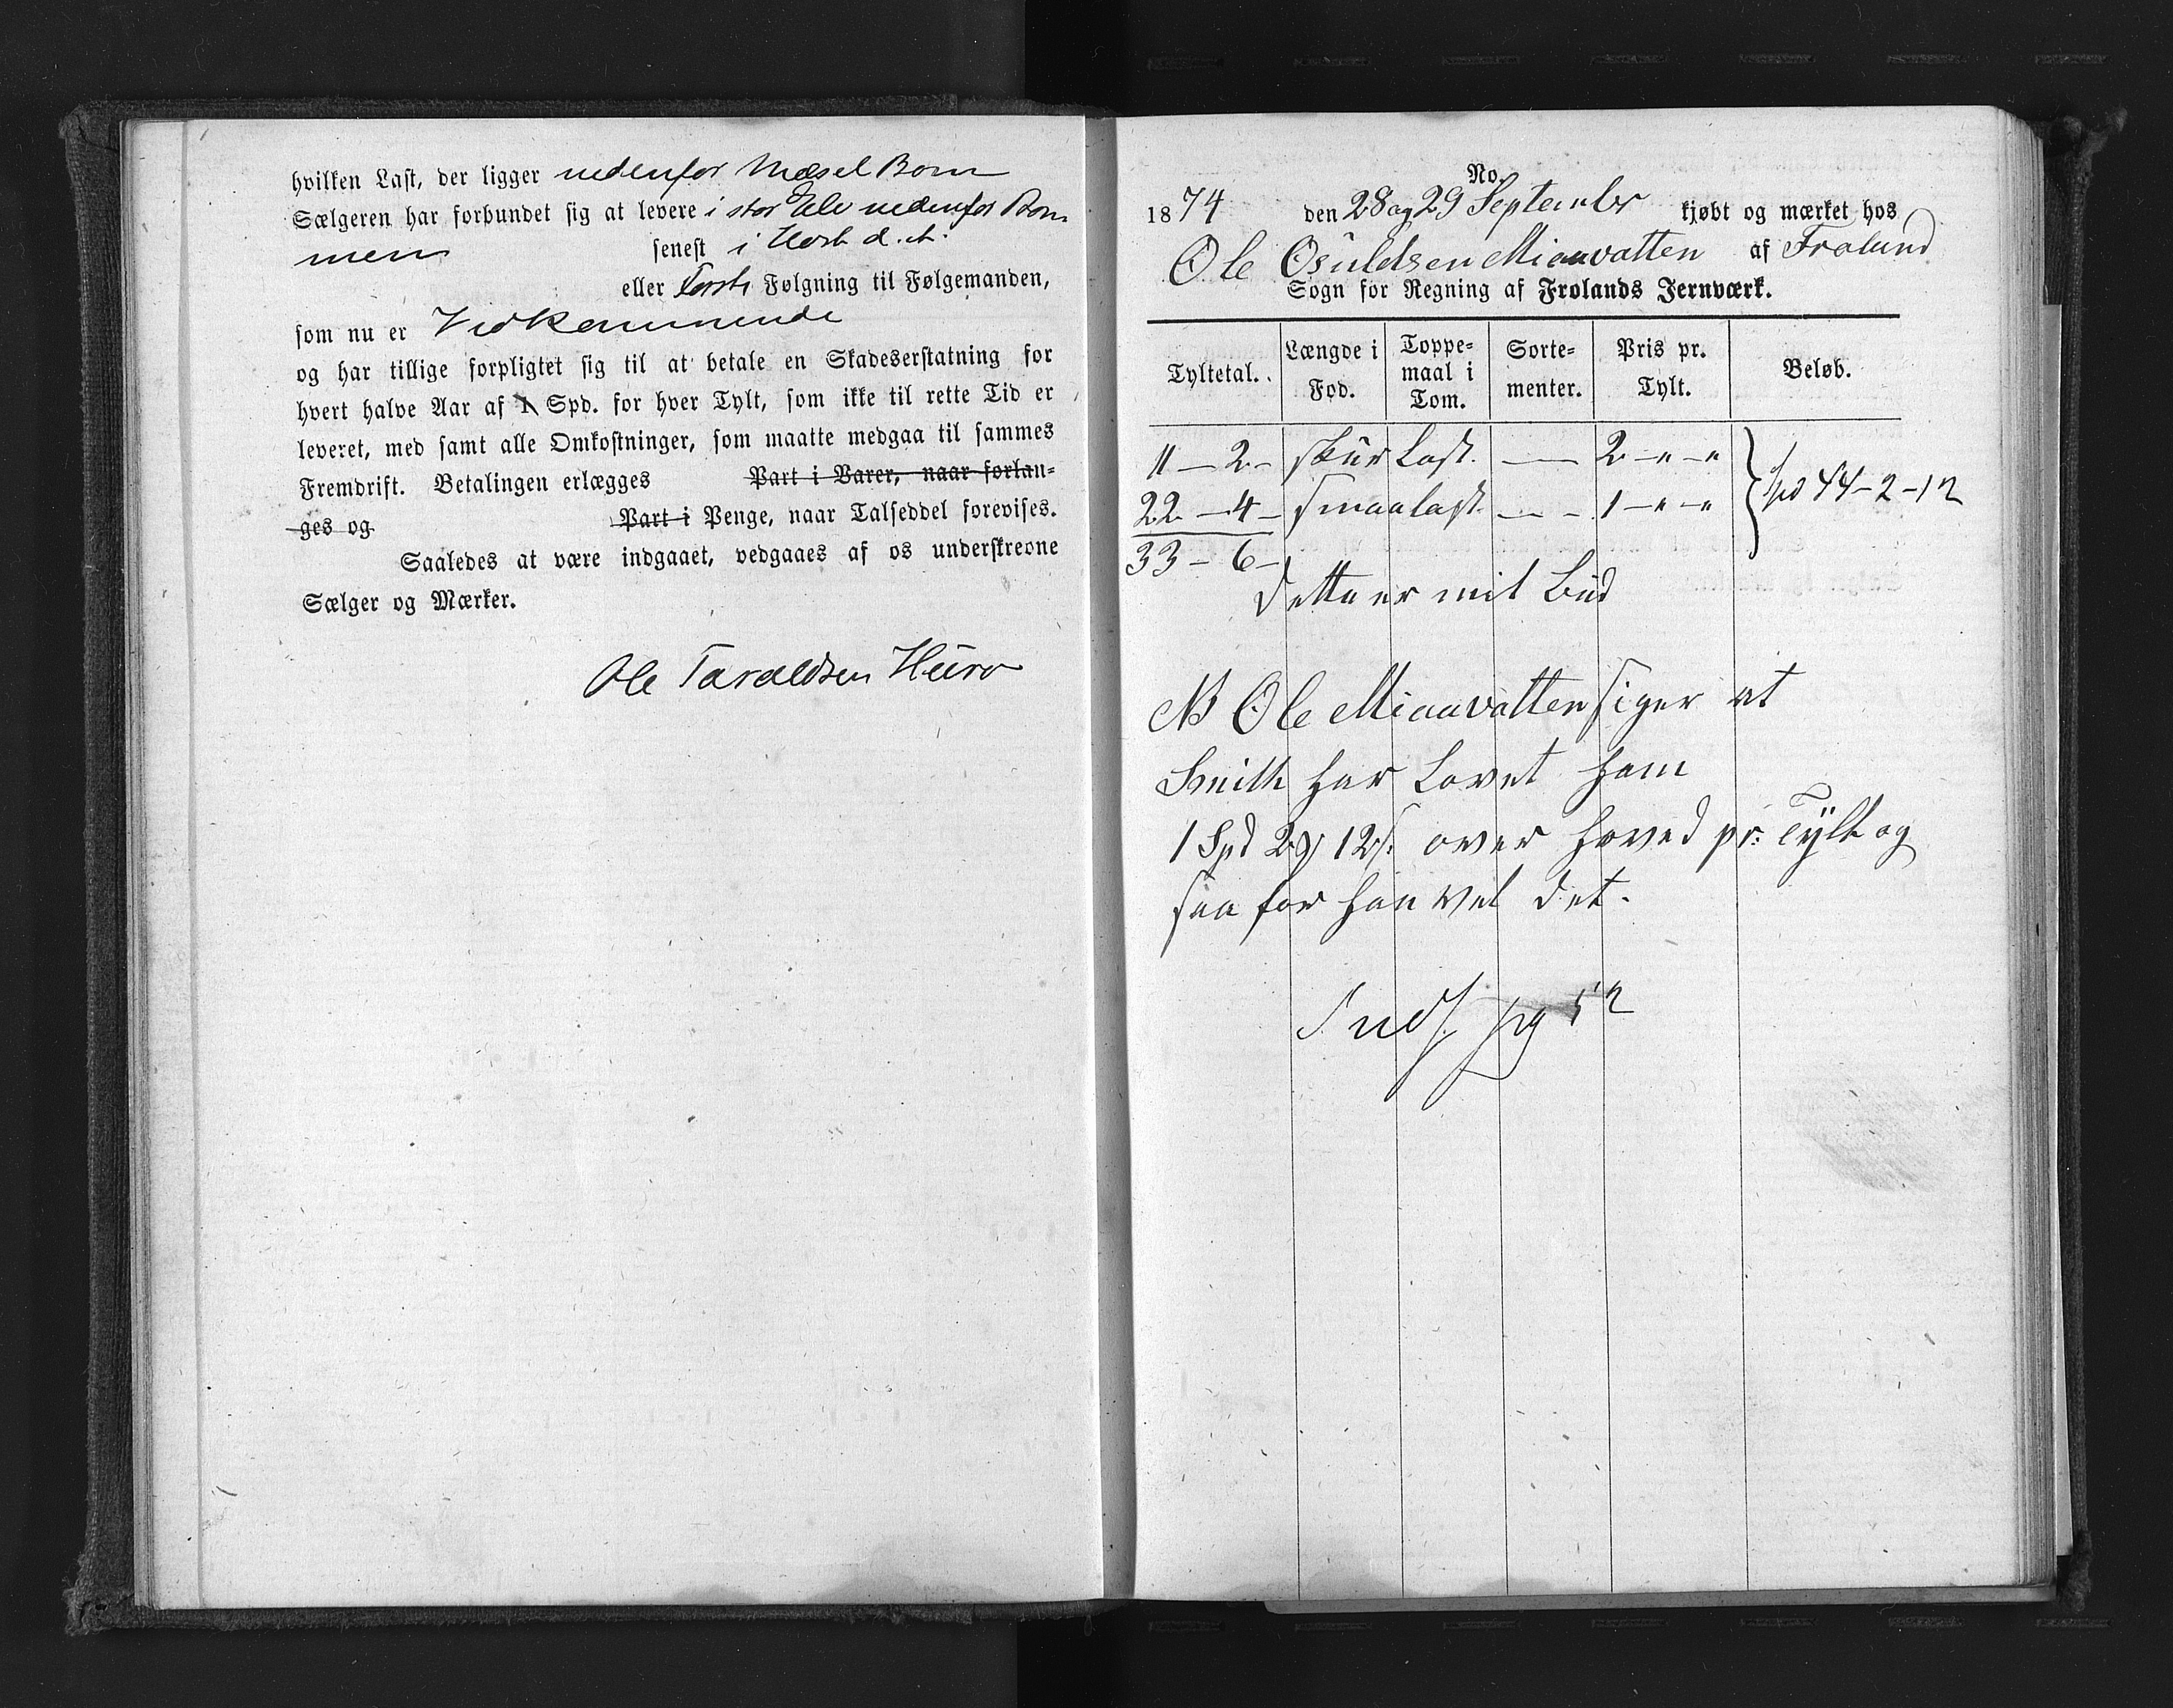 hvilken Last, der ligger nedenfor Mæsel Bom
Sælgeren har forbundet sig at levere i stor Elv nedenfor Bom
men senest i Høst d. A.
eller første Følgning til Følgemanden,
som nu er Vedkommende
og har tillige forpligtet sig til at betale en Skadeserstatning for
hvert halve Aar af 1 Spd. for hver Tylt, som ikke til rette Tid er
leveret, med samt alle Omkostninger, som maatte medgaa til sammes
Fremdrift. Betalingen erlægges Part i Varer, naar forlan-
ges og Part i Penge, naar Talseddel forevises.
Saaledes at være indgaaet, vedgaaes af os underskrevne
Sælger og Mærker.
Ole Taraldsen Hurv
No.
1874 den 28 og 29 September kjøbt og mærket hos
Ole Osuldsen Miauvatten af Froland
Sogn for Regning af Frolands Jernværk.
Tyltetal. Længde i Fod. Toppe-maal i Tom. Sorte-menter. Pris pr. Tylt. Beløb.
11 — 2 – Skur Last. — 2 – " – "
22 – 4 – Smaalast. — – 1 – " – " } Spd 44 – 2 – 12
33 – 6 –
dette er mit Bud
NB Ole Miauvatten siger at
Smith har Lovet ham
1 Spd 2 12 s. over hoved pr: Tylt og
saa for han vel det.
Indf. pg 52